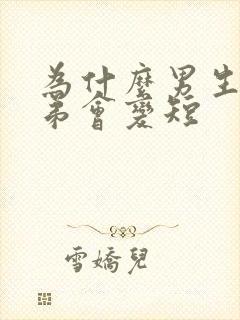 為什麼男生
弟會變短
雪嬌兒